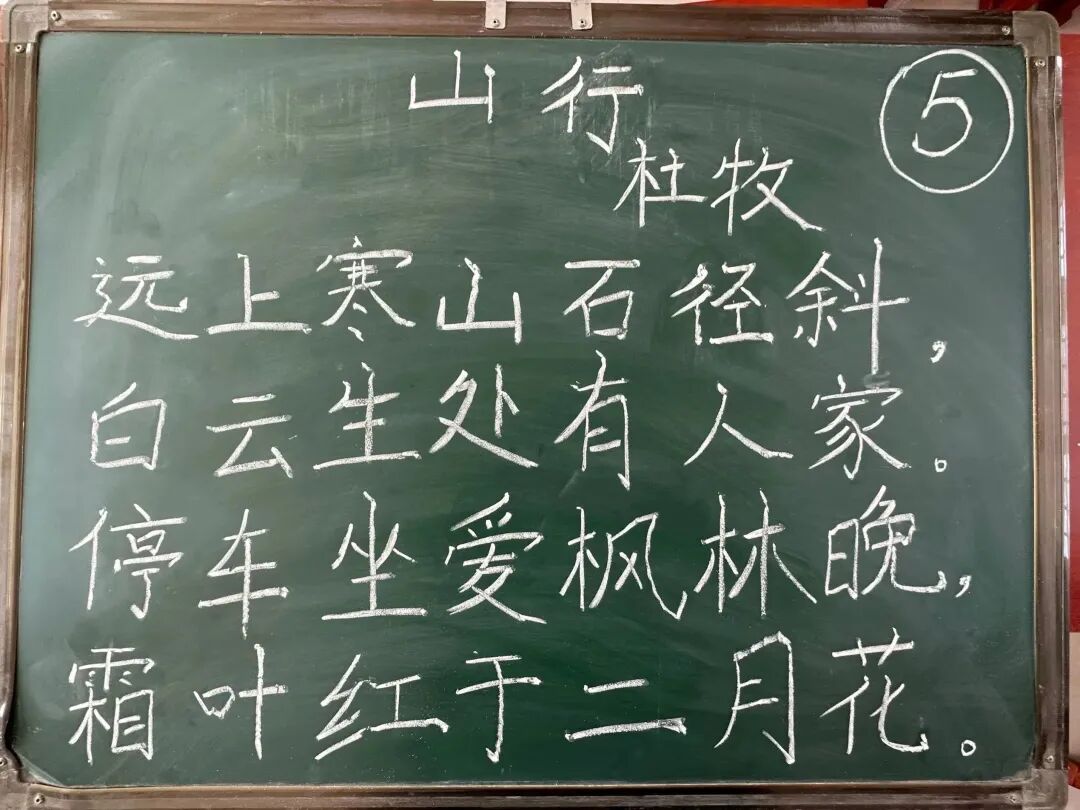 山行
⑤
杜牧
远上寒山石径斜，
白云生处有人家。
停车坐爱枫林晚，
霜叶红于二月花。